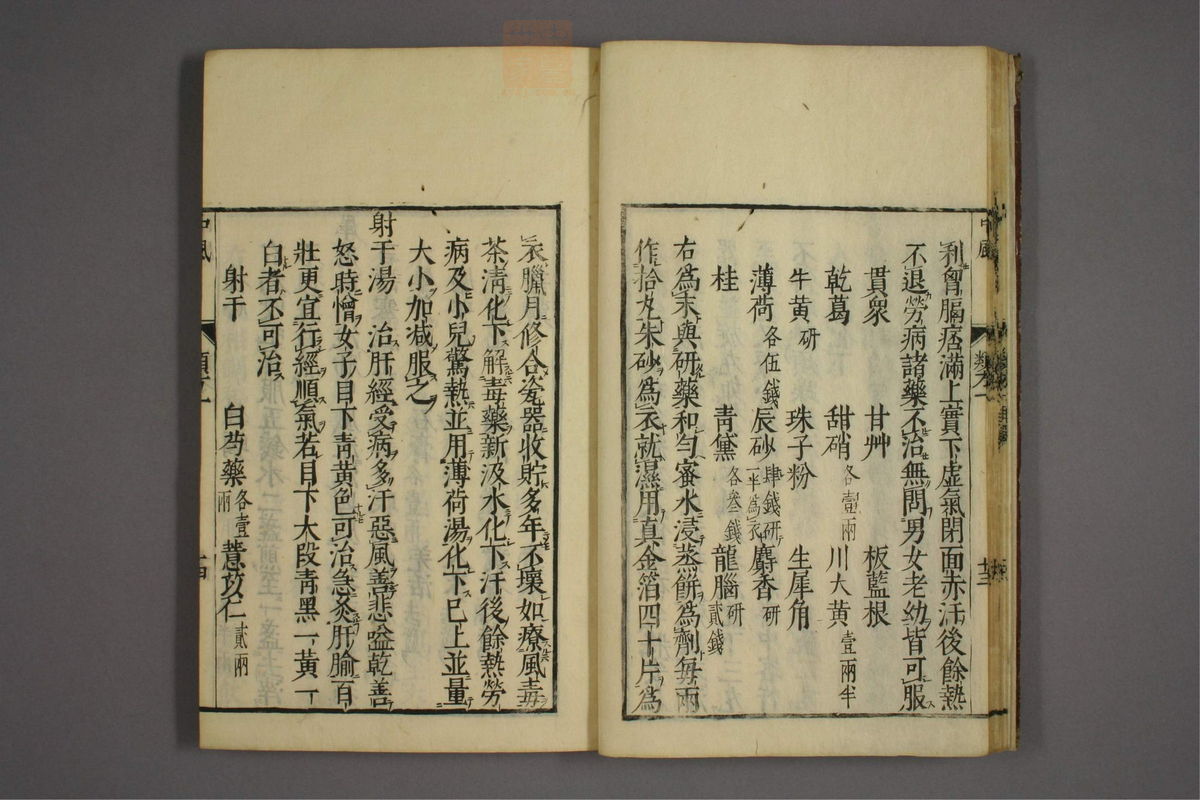 利胷膈痞滿上實下虛氣閉面赤汗後餘熱
不退勞病諸藥不治無問男女老幼皆可服
貫衆 甘艸 板藍根
乾葛 甜硝各壹兩 川大黄壹兩半
牛黄研 珠子粉 生犀角
薄荷各伍錢 辰砂肆錢研一半為衣 麝香研
桂 青黛各叁錢 龍腦研貳錢
右為末與研藥和勻蜜水浸蒸餅為劑每兩
作拾丸朱砂為衣就濕用真金箔四十片為
中風
廿三
衣臘月修合瓷器收貯多年不壞如療風毒
茶淸化下解毒藥新汲水化下汗後餘熱勞
病及小兒驚熱並用薄荷湯化下已上並量
大小加减服之
射干湯 治肝經受病多汗惡風善悲嗌乾善
怒時憎女子目下青黄色可治急灸肝腧百
壯更宜行經順氣若目下大段青黑一黄一
白者不可治
射干 白芍藥各壹兩 薏苡仁貳兩
中風